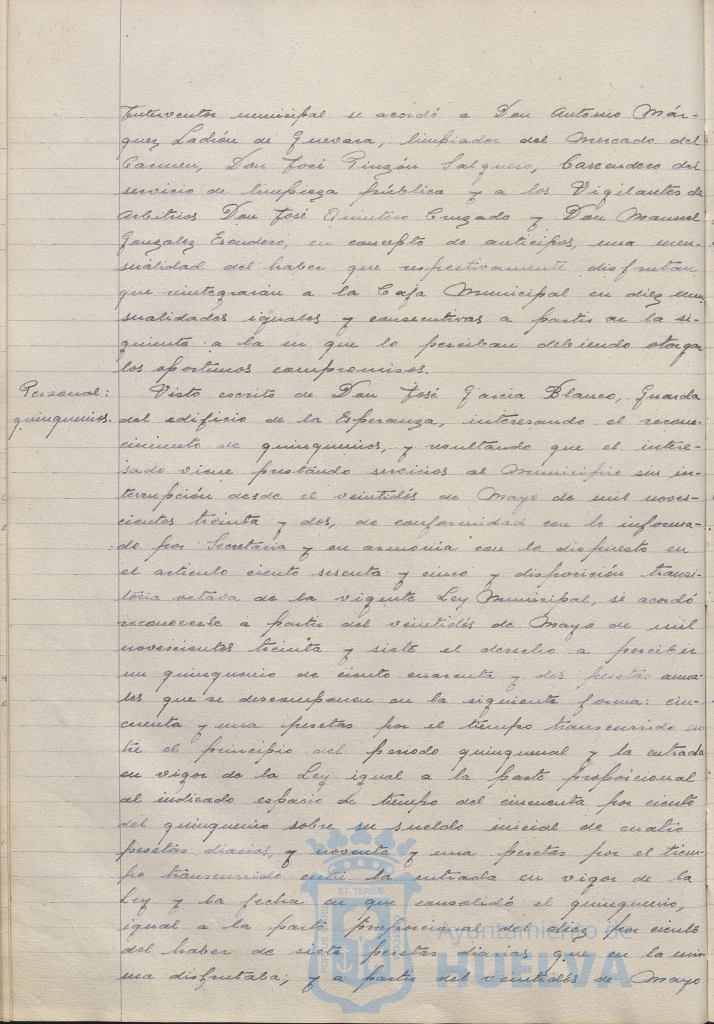 Interventor municipal se acordó a Don Antonio Már-
quez Ladrón de Guevara, limpiador del Mercado del
Carmen, Don José Pinzón Salguero, Carrendero del
servicio de limpieza pública y a los Vigilantes de
arbitrios Don José Quintero Cruzado y Don Manuel
Gonzalez Escudero, en concepto de anticipos, una men-
sualidad del haber que respectivamente disfrutan
que reintegrarán a la Caja Municipal en diez men-
sualidades iguales y consecutivas a partir de la si-
guiente a la en que lo perciban debiendo otorgar
los oportunos compromisos.
Personal:
quinquenios.
Visto escrito de Don José Garcia Blanco, Guarda
del edificio de la Esperanza, interesando el recono-
cimiento de quinquenios, y resultando que el intere-
sado viene prestando servicios al Municipio sin in-
terrupción desde el veintidós de Mayo de mil noves-
cientos treinta y dos, de conformidad con lo informa-
do por Secretaria y en armonia con lo dispuesto en
el articulo ciento sesenta y cinco y disposición transi-
toria octava de la vigente Ley Municipal, se acordó
reconocerle a partir del veintidós de Mayo de mil
novescientos treinta y siete el derecho a percibir
un quinquenio de ciento cuarenta y dos pesetas anua-
les que se descomponen en la siguiente forma: cin-
cuenta y una pesetas por el tiempo transcurrido en-
tre el principio del periodo quinquenal y la entrada
en vigor de la Ley igual a la parte proporcional
al indicado espacio de tiempo del cincuenta por ciento
del quinquenio sobre su sueldo inicial de cuatro
pesetas diarias, y noventa y una pesetas por el tiem-
po transcurrido entre la entrada en vigor de la
Ley y la fecha en que consolidó el quinquenio,
igual a la parte proporcional del diez por ciento
del haber de siete pesetas diarias que en la mis-
ma disfrutaba; y a partir del veintidós de Mayo
ET TERRÆ
Ayuntamiento de
HUELVA